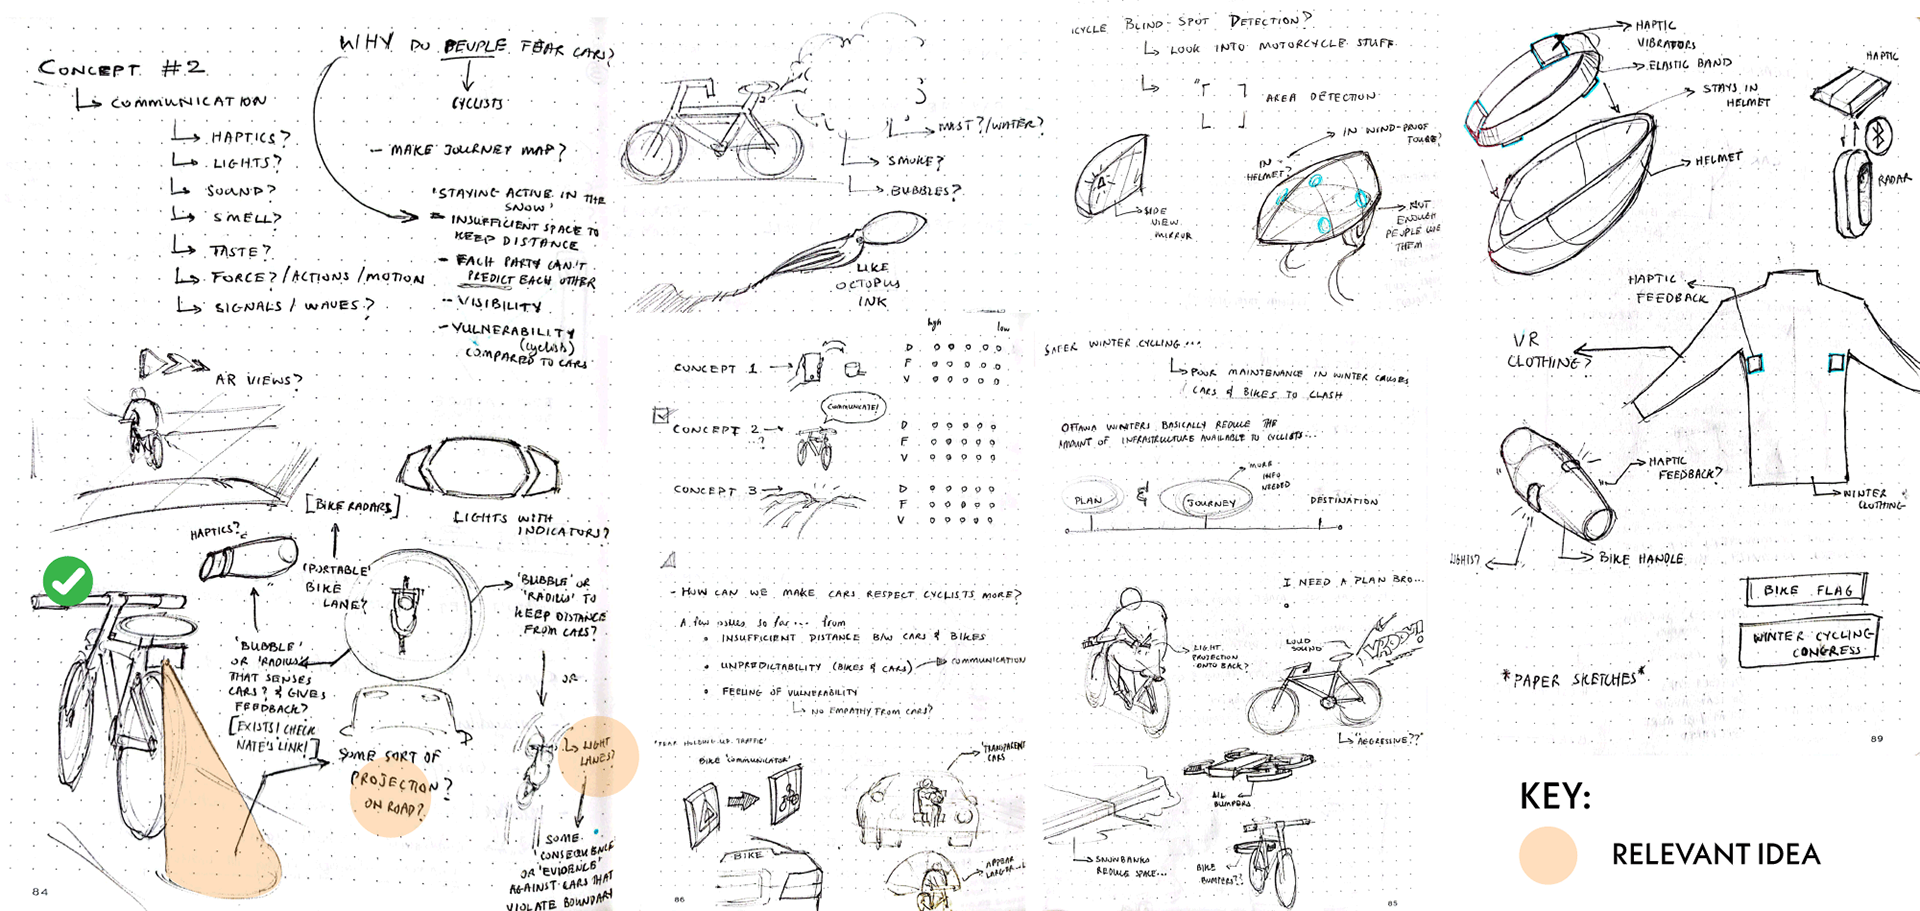 CONCEPT #2
COMMUNICATION
HAPTICS?
LIGHTS?
SOUND?
SMELL?
TASTE?
FORCE? / ACTIONS / MOTION
SIGNALS / WAVES?
WHY DO PEOPLE FEAR CARS?
CYCLISTS
- MAKE JOURNEY MAP?
'STAYING ACTIVE IN THE
SNOW'
INSUFFICIENT SPACE TO
KEEP DISTANCE
- EACH PARTY CAN'T
PREDICT EACH OTHER
- VISIBILITY
- VULNERABILITY
(cyclists)
COMPARED TO CARS
AR VIEWS?
[BIKE RADARS]
LIGHTS WITH
INDICATORS?
HAPTICS?
'PORTABLE'
BIKE
LANE?
'BUBBLE' OR
'RADIUS' TO
KEEP DISTANCE
FROM CARS?
OR
'BUBBLE'
OR 'RADIUS'
THAT SENSES
CARS? & GIVES
FEEDBACK?
[EXISTS! CHECK
NATE'S LINK!]
SOME SORT OF
PROJECTION?
ON ROAD?
LIGHT
LANES?
SOME
'CONSEQUENCE
OR 'EVIDENCE'
AGAINST CARS THAT
VIOLATE BOUNDARY
84
MIST? / WATER?
SMOKE?
BUBBLES?
LIKE
OCTOPUS
INK
high low
CONCEPT 1
D
F
V
COMMUNICATE!
CONCEPT 2
..?
D
F
V
CONCEPT 3
D
F
V
- HOW CAN WE MAKE CARS RESPECT CYCLISTS MORE?
A few issues so far... from
INSUFFICIENT DISTANCE B/W CARS & BIKES
UNPREDICTABILITY (BIKES & CARS) COMMUNICATION
FEELING OF VULNERABILITY
NO EMPATHY FROM CARS?
'FEAR HOLDING UP TRAFFIC'
BIKE 'COMMUNICATOR'
'TRANSPARENT'
CARS
BIKE
APPEAR
LARGER...
86
CYCLE BLIND-SPOT DETECTION?
LOOK INTO MOTORCYCLE STUFF
AREA DETECTION
SIDE
VIEW
MIRROR
IN
HELMET?
IN WIND-PROOF
TOQUE?
NOT
ENOUGH
PEOPLE USE
THEM
SAFER WINTER CYCLING...
POOR MAINTENANCE IN WINTER CAUSES
CARS & BIKES TO CLASH
OTTAWA WINTERS BASICALLY REDUCE THE
AMOUNT OF INFRASTRUCTURE AVAILABLE TO CYCLISTS...
MORE
INFO
NEEDED
PLAN & JOURNEY DESTINATION
I NEED A PLAN BRO...
LIGHT
PROJECTION
ONTO BACK?
LOUD
SOUND
VROOM!
"AGGRESSIVE??"
AIR
BUMPERS
SNOWBANKS
REDUCE SPACE...
BIKE
BUMPERS??
85
HAPTIC
VIBRATORS
ELASTIC BAND
STAYS IN
HELMET
HELMET
HAPTIC
RADAR
HAPTIC
FEEDBACK
VR
CLOTHING?
HAPTIC
FEEDBACK?
WINTER
CLOTHING
LIGHTS?
BIKE HANDLE
BIKE FLAG
WINTER CYCLING
CONGRESS
*PAPER SKETCHES*
89
KEY:
RELEVANT IDEA